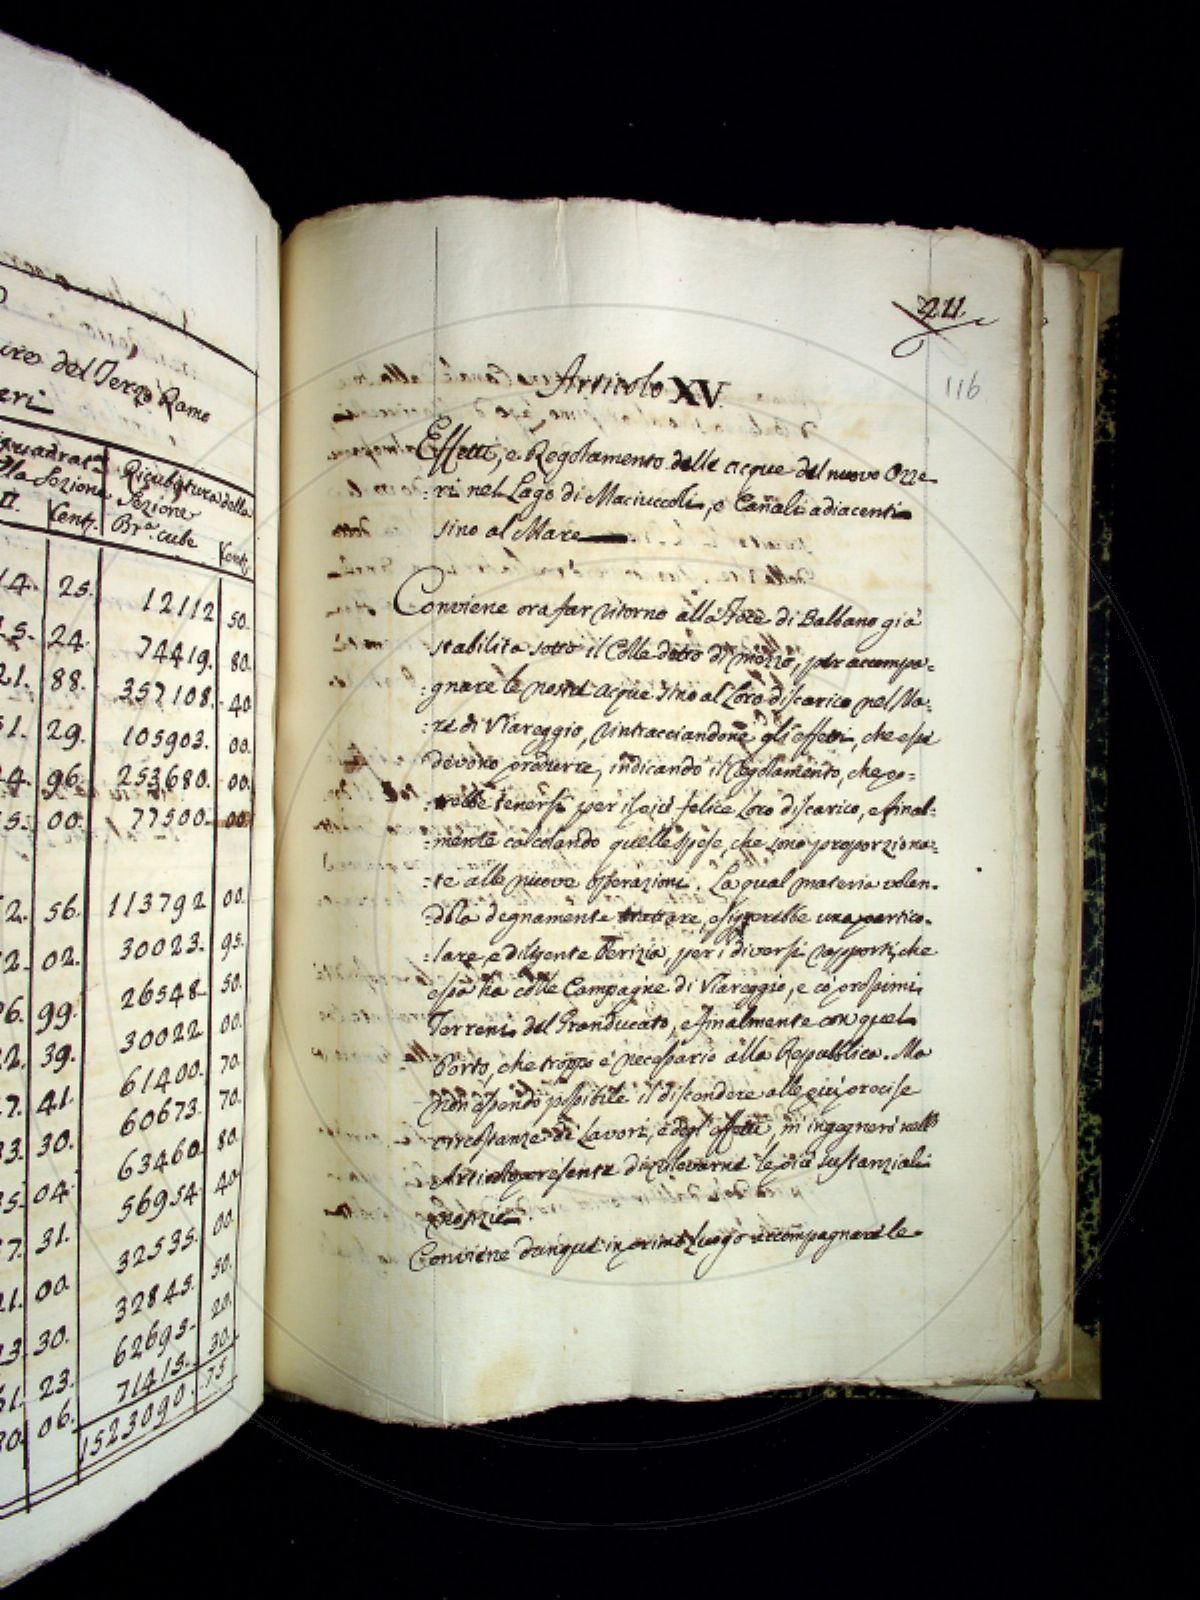 ure del Terzo Ramo
eri
quadrat
Ricubatura della
della Sezione
Sezione
Centi.
Br.a cube
Centi.
14. 25. 12112 50.
15. 24. 74419. 80.
21. 88. 357108. 40
51. 29. 105903. 00.
24. 96. 253680. 00.
5. 00. 77500. 00
2. 56. 113792 00.
2. 02. 30023. 95.
26. 99. 26548 50.
22. 39. 30022 00.
7. 41. 61400. 70.
33. 30. 60673. 70.
35. 04. 63460 80.
7. 31. 56954 40
21. 00. 32535. 00.
23. 30. 32845. 50.
51. 23. 62695. 20.
30. 06. 71415. 30.
1523090. 75
211.
116
Articolo XV.
Effetti, e Regolamento delle acque del nuovo Ozze
:ri nel Lago di Maciuccoli, e Canali adiacenti
sino al Mare
Conviene ora far ritorno alla Foce di Balbano già
stabilita sotto il Colle detto di mezzo, per accompa-
:gnare le nostre acque sino al Loro discarico nel Ma-
:re di Viareggio, rintracciandone gli effetti, che essi
devono produrre, indicando il Regolamento, che po-
:trebbe tenersi per il più felice Loro discarico, e final-
:mente calcolando quelle spese, che sono proporziona-
:te alle nuove operazioni. La qual materia volen-
:dola degnamente trattare, esiggerebbe una partico-
:lare, e diligente Perizia, per i diversi rapporti, che
essa ha colle Campagne di Viareggio, e co' prossimi
Terreni del Granducato, e finalmente con quel
Porto, che troppo è necessario alla Repubblica. Ma
non essendo possibile il discendere alle più precise
circostanze de' Lavori, e degl'effetti, m'ingegnerò nell'
Articolo presente di rilevarne le più sustanziali
notizie.
Conviene dunque in primo Luogo accompagnare le